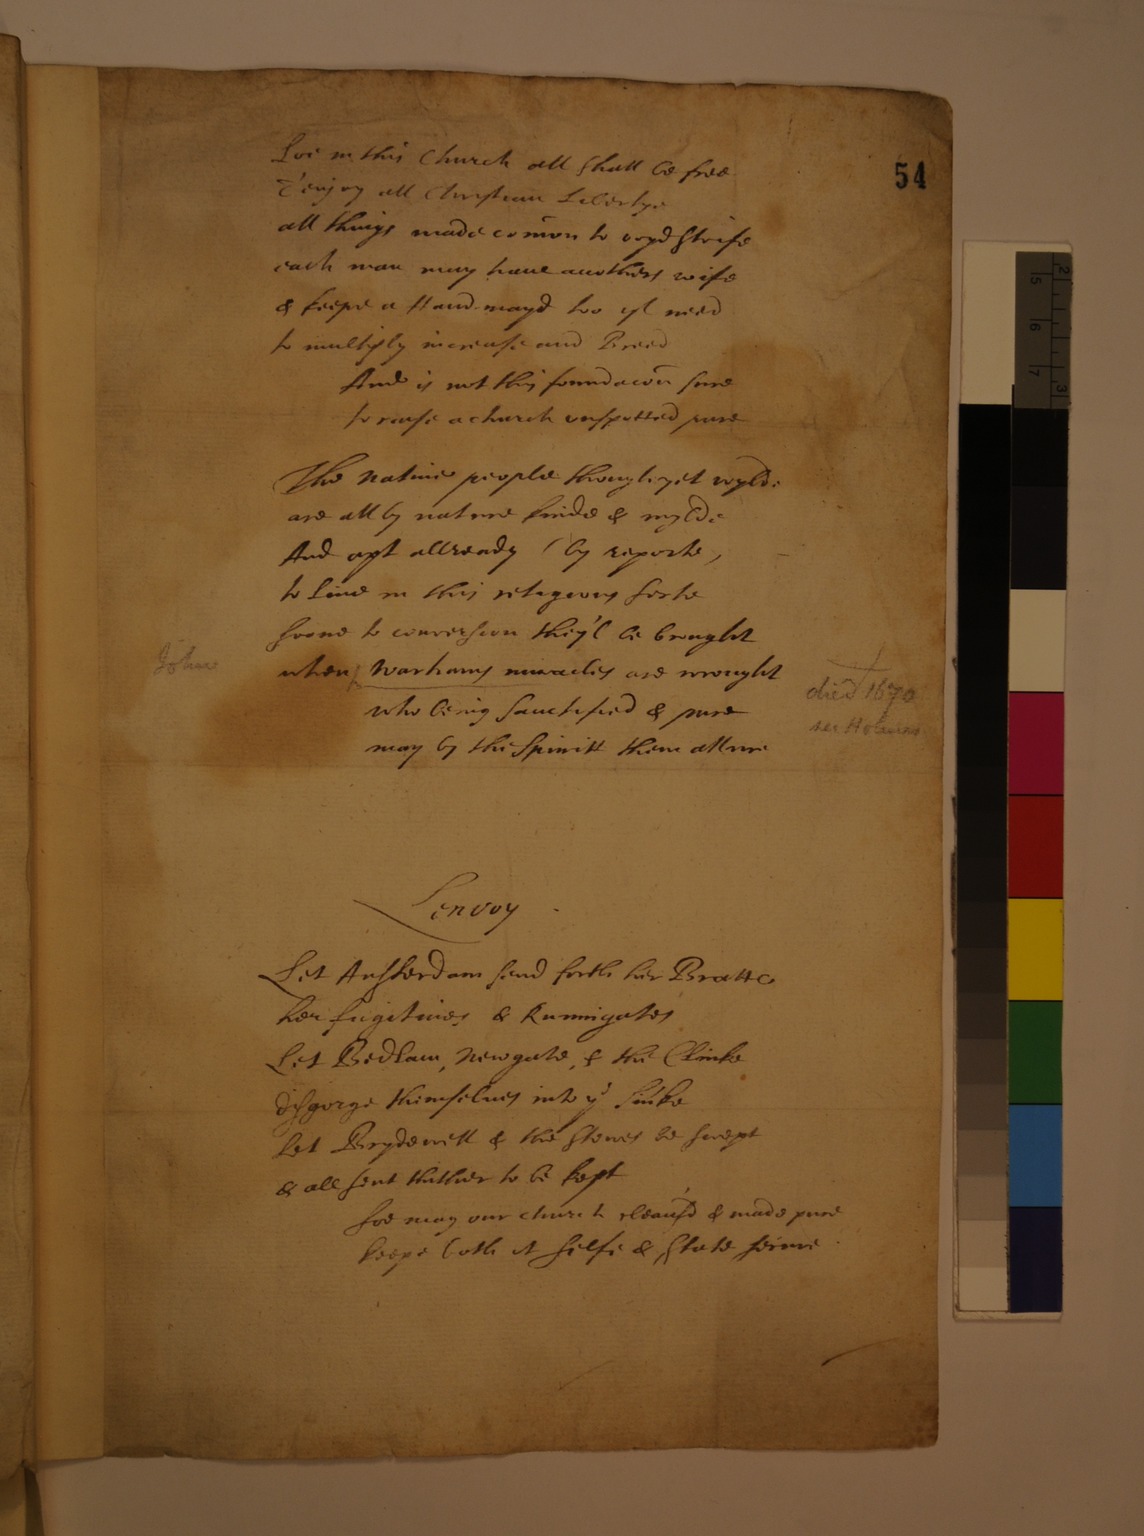 54
Loe in this Church all shall be free
T'enjoy all Christian Libertye
all things made comon to voyd strife
each man may haue anothers wife
& keepe a Hand-mayd too yf need
to multiply increase and Breed
And is not this foundacon sure
to raise a church vnspotted pure
The natiue people though yet wylde
are all by nature kinde & mylde
And apt allready (by reporte)
to liue in this religeous sorte
soone to conversion they'l be brought
when Warhams miracles are wrought
who being sanctified & pure
may by the Spiritt them allure
John
died 1670
Lenvoy
Let Amsterdam send forth her Bratts
her fugitiues & Runnigates
Let Bedlam, Newgate, & the Clinke
disgorge themselues into ye sinke
Let Brydewell & the stewes be swept
& all sent thither to be kept
soe may our church cleans'd & made pure
keepe both it selfe & state secure